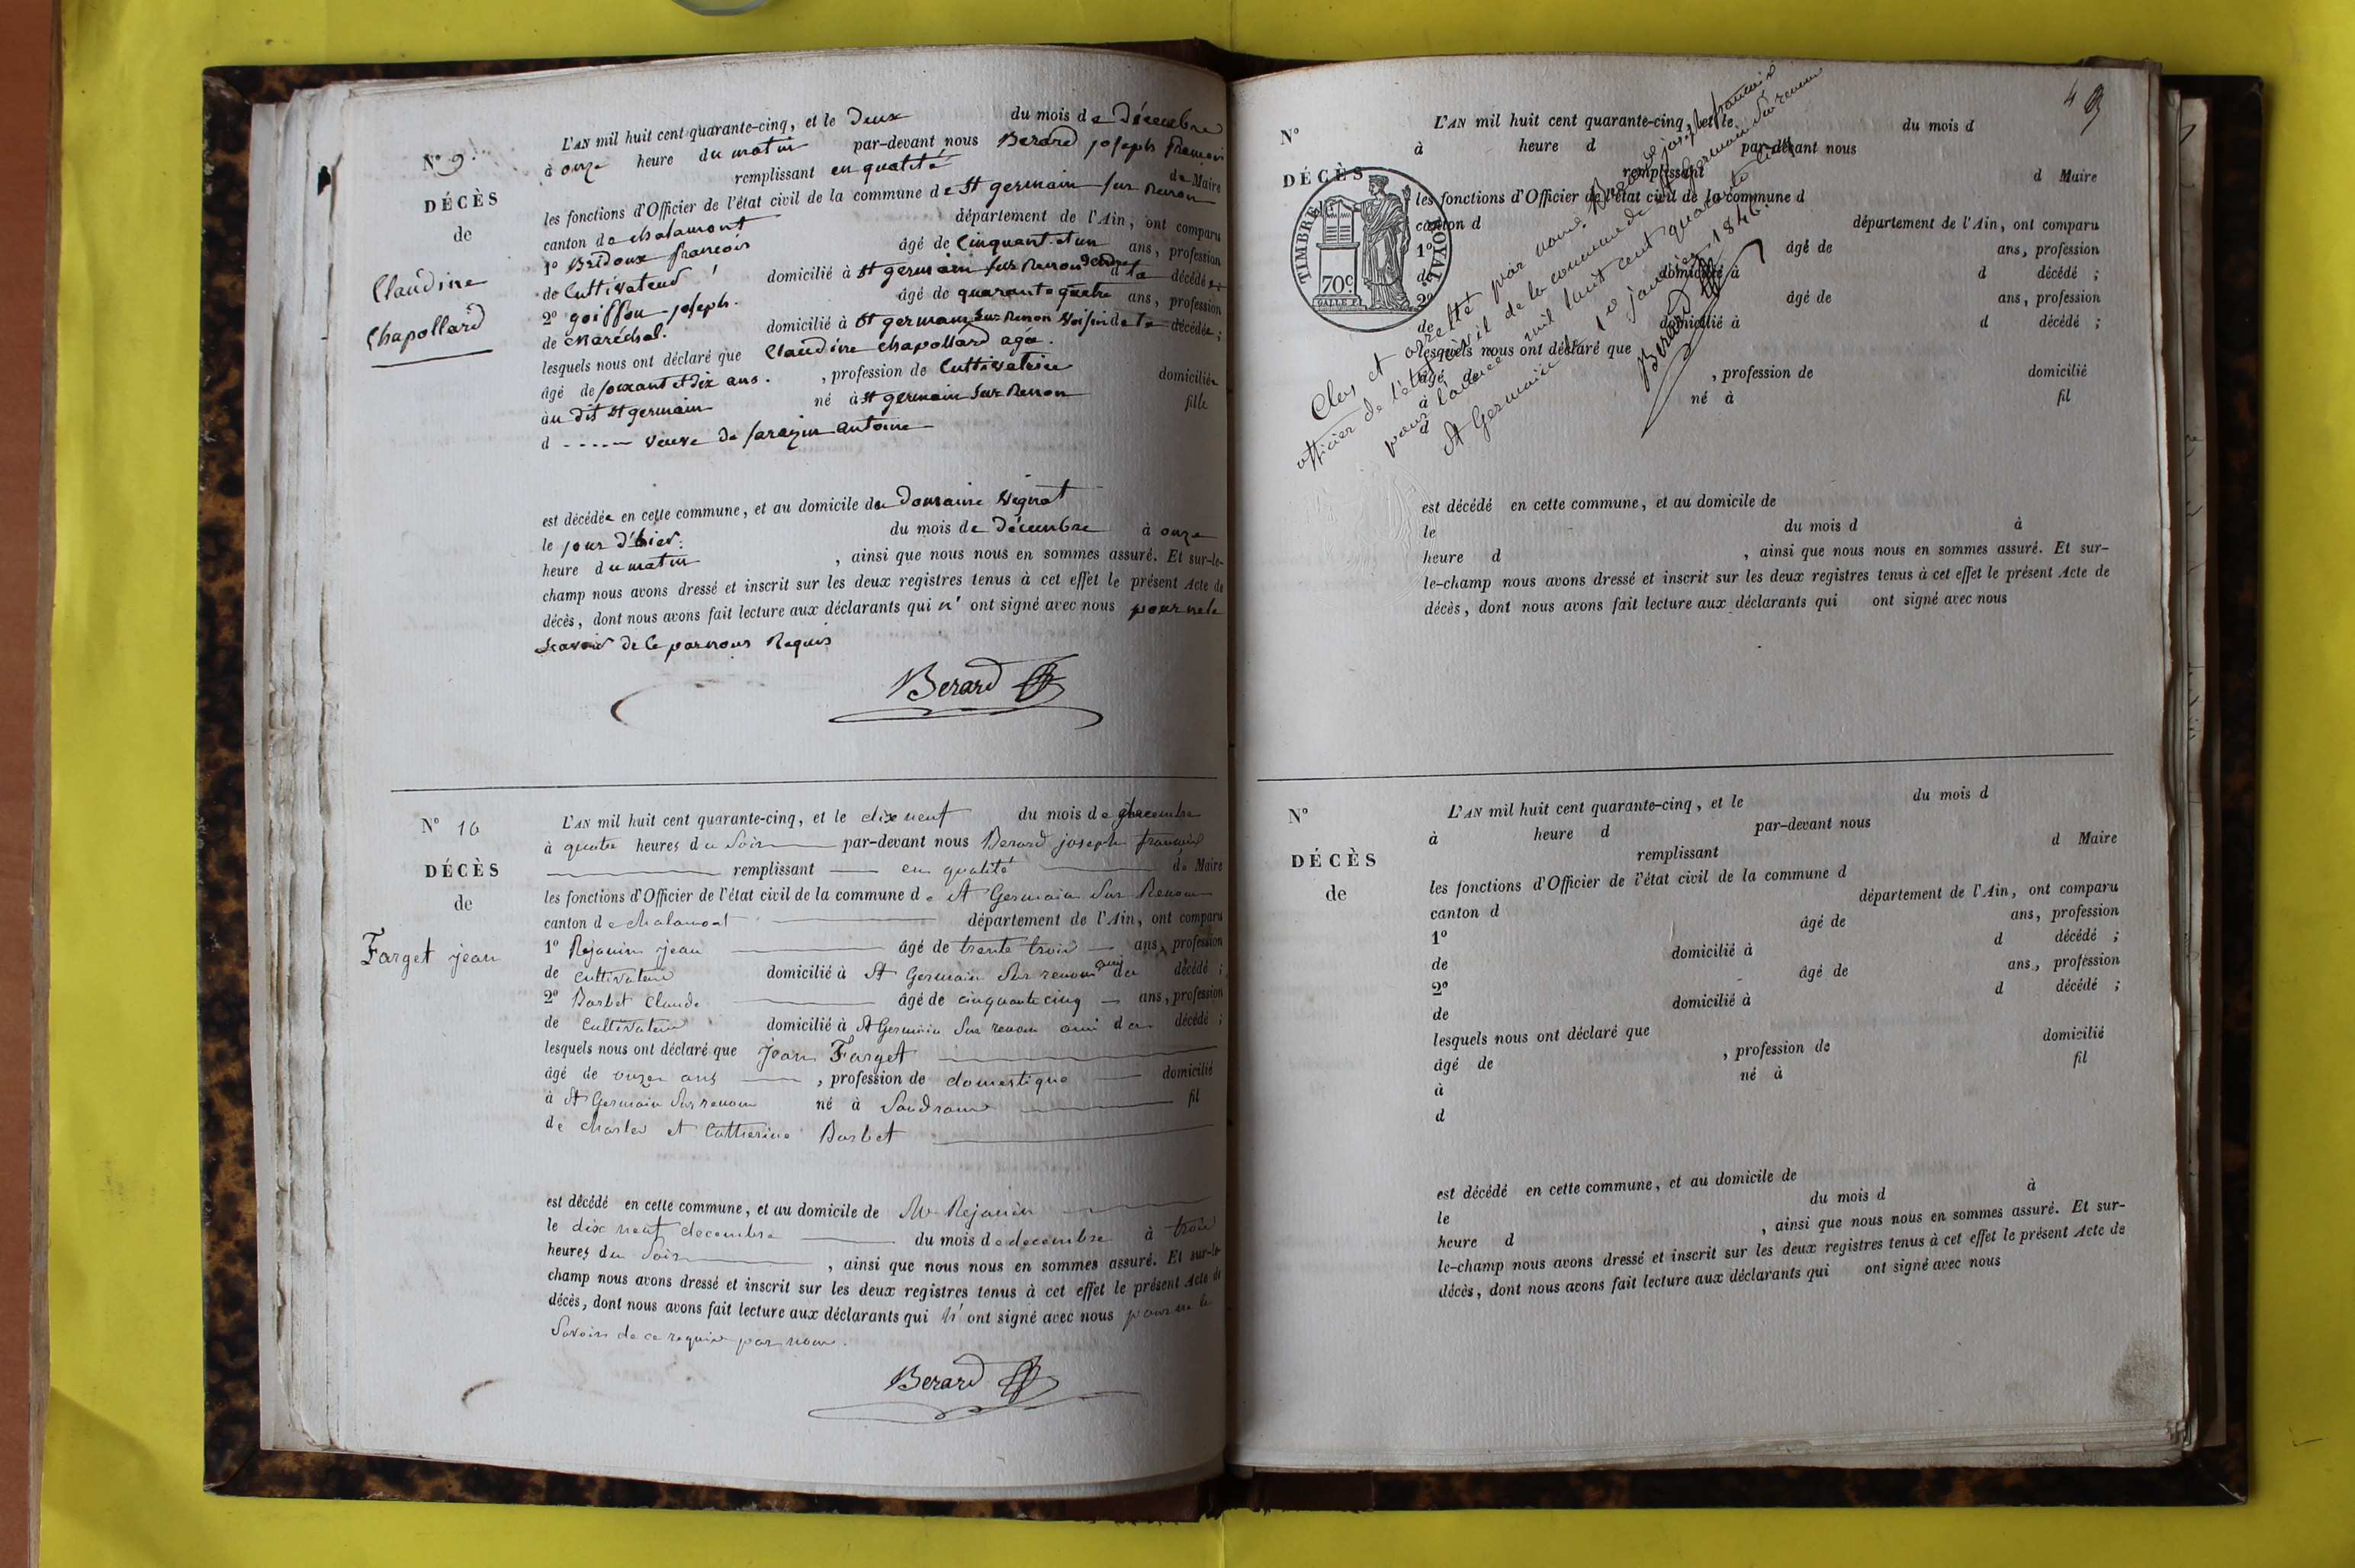 N° 9.
DÉCÈS
de
Claudine
Chapollard
L'AN mil huit cent quarante-cinq, et le Deux du mois de Décembre
à onze heure du matin par-devant nous Berard joseph francois
remplissant en qualité de Maire
les fonctions d'Officier de l'état civil de la commune de St germain sur Renon
canton de chalamont département de l'Ain, ont comparu
1° Bridoux francois âgé de Cinquant et un ans, profession
de Cultivateur domicilié à St germain sur Renon gendre d la décédée
2° goiffon joseph. âgé de quarante quatre ans, profession
de Maréchal. domicilié à St germain sur Renon Voisin de la décédée ;
lesquels nous ont déclaré que Claudine Chapollard agée.
âgé de soixant et dix ans. , profession de Cultivatrice domiciliée
au dit St germain né à St germain sur Renon fille
d ----- veuve de sarazin antoine
est décédée en cette commune, et au domicile du Domaine Vignat
le jour d'hier. du mois de Décembre à onze
heure du matin , ainsi que nous nous en sommes assuré. Et sur-le-
champ nous avons dressé et inscrit sur les deux registres tenus à cet effet le présent Acte de
décès, dont nous avons fait lecture aux déclarants qui n' ont signé avec nous pour ne le
scavoir de ce par nous Requis
Berard
N° 10
DÉCÈS
de
Farget jean
L'AN mil huit cent quarante-cinq, et le dix neuf du mois de décembre
à quatre heures du soir par-devant nous Berard joseph francois
remplissant en qualité de Maire
les fonctions d'Officier de l'état civil de la commune de St Germain sur Renon
canton de chalamont département de l'Ain, ont comparu
1° Rejanin jean âgé de trente trois ans, profession
de cultivateur domicilié à St Germain sur renon ami du décédé ;
2° Barbet Claude âgé de cinquante cinq ans, profession
de cultivateur domicilié à St Germain sur renon ami du décédé ;
lesquels nous ont déclaré que Jean Farget
âgé de onze ans , profession de domestique domicilié
à St Germain sur renon né à Sandrans fil
de charles et Catherine Barbet
est décédé en cette commune, et au domicile de Mr Rejanin
le dix neuf decembre du mois de decembre à trois
heures du soir , ainsi que nous nous en sommes assuré. Et sur-le-
champ nous avons dressé et inscrit sur les deux registres tenus à cet effet le présent Acte de
décès, dont nous avons fait lecture aux déclarants qui n' ont signé avec nous pour ne le
savoir de ce requis par nous.
Berard
4
N°
DÉCÈS
TIMBRE ROYAL
70c
L'AN mil huit cent quarante-cinq, et le du mois d
à heure d par-devant nous
remplissant d Maire
les fonctions d'Officier de l'état civil de la commune d
canton d département de l'Ain, ont comparu
1° âgé de ans, profession
de domicilié à d décédé ;
2° âgé de ans, profession
de domicilié à d décédé ;
lesquels nous ont déclaré que
âgé de , profession de domicilié
à né à fil
d
Clos et arretté par nous Berard joseph francois
officier de l'état civil de la commune de St Germain sur renon
pour l'année mil huit cent quarante cinq
St Germain le 1er janvier 1846.
Berard
est décédé en cette commune, et au domicile de
le du mois d à
heure d , ainsi que nous nous en sommes assuré. Et sur-
le-champ nous avons dressé et inscrit sur les deux registres tenus à cet effet le présent Acte de
décès, dont nous avons fait lecture aux déclarants qui ont signé avec nous
N°
DÉCÈS
de
L'AN mil huit cent quarante-cinq, et le du mois d
à heure d par-devant nous
remplissant d Maire
les fonctions d'Officier de l'état civil de la commune d
canton d département de l'Ain, ont comparu
1° âgé de ans, profession
de domicilié à d décédé ;
2° âgé de ans, profession
de domicilié à d décédé ;
lesquels nous ont déclaré que
âgé de , profession de domicilié
à né à fil
d
est décédé en cette commune, et au domicile de
le du mois d à
heure d , ainsi que nous nous en sommes assuré. Et sur-
le-champ nous avons dressé et inscrit sur les deux registres tenus à cet effet le présent Acte de
décès, dont nous avons fait lecture aux déclarants qui ont signé avec nous